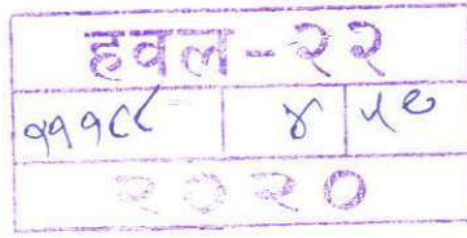 हवल-२२
१११८८ ४ ५७
२०२०